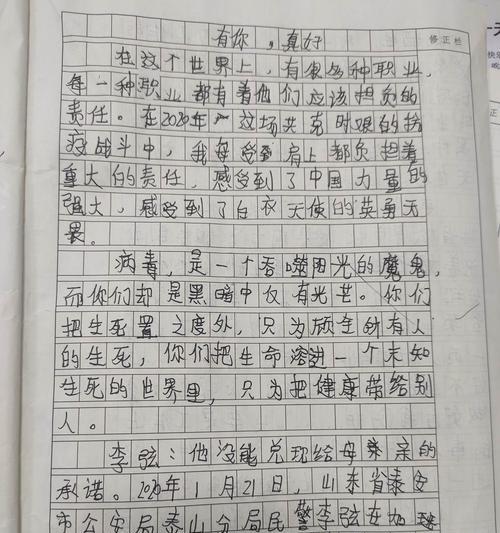 有你，真好
修正栏
在这个世界上，有很多种职业，
每一种职业都有着他们应该担负的
责任。在2020年，这场共克时艰的抗
疫战斗中，我每受到肩上都负担着
重大的责任，感受到了中国力量的
强大，感受到了白衣天使的英勇无
畏。
病毒，是一个吞噬阳光的魔鬼，
而你们却是黑暗中仅有光芒。你们
把生死置之度外，只为顾全所有人
的生死，你们把生命溶进一个未知
生死的世界里，只为把健康带给别
人。
李弦：他没能兑现给母亲的
承诺。2020年1月21日，山东省泰安
市公安局泰山分局民警李弦在